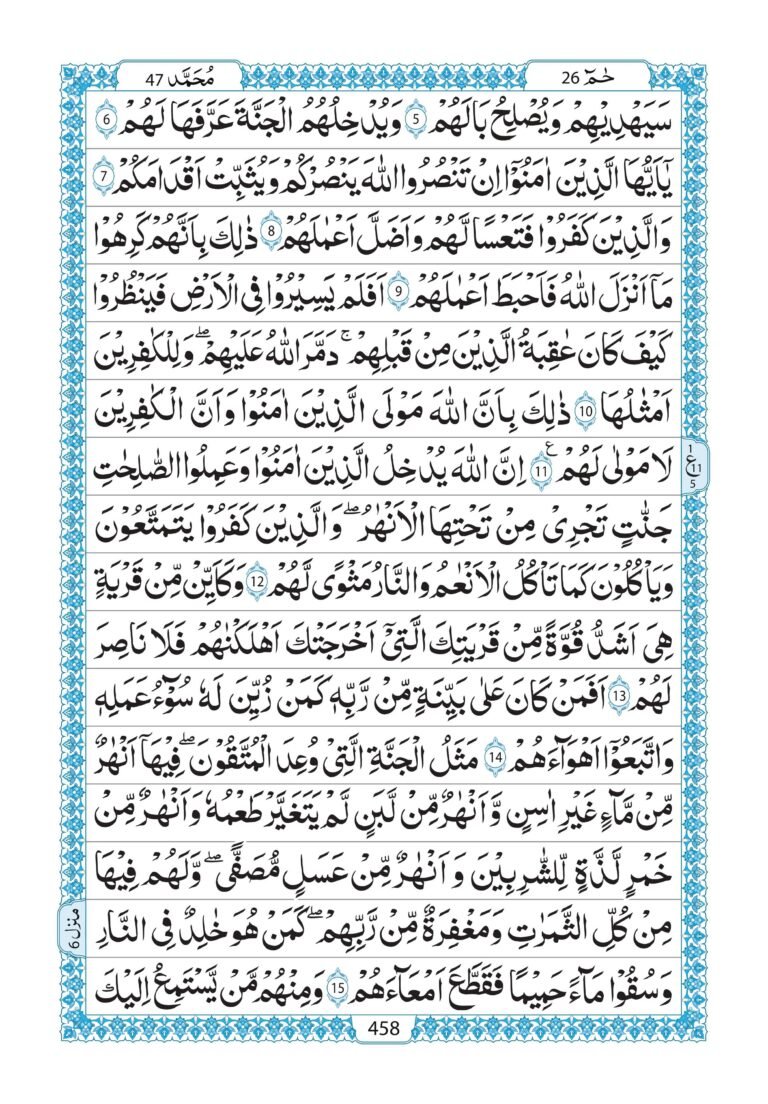 حٰمٓ 26
مُحَمَّد 47
سَيَهْدِيْهِمْ وَيُصْلِحُ بَالَهُمْ 5 وَيُدْخِلُهُمُ الْجَنَّةَ عَرَّفَهَا لَهُمْ 6
يٰٓاَيُّهَا الَّذِيْنَ اٰمَنُوْٓا اِنْ تَنْصُرُوا اللّٰهَ يَنْصُرْكُمْ وَيُثَبِّتْ اَقْدَامَكُمْ 7
وَالَّذِيْنَ كَفَرُوْا فَتَعْسًا لَّهُمْ وَاَضَلَّ اَعْمٰلَهُمْ 8 ذٰلِكَ بِاَنَّهُمْ كَرِهُوْا
مَآ اَنْزَلَ اللّٰهُ فَاَحْبَطَ اَعْمٰلَهُمْ 9 اَفَلَمْ يَسِيْرُوْا فِى الْاَرْضِ فَيَنْظُرُوْا
كَيْفَ كَانَ عٰقِبَةُ الَّذِيْنَ مِنْ قَبْلِهِمْ ۚ دَمَّرَ اللّٰهُ عَلَيْهِمْ ۖ وَلِلْكٰفِرِيْنَ
اَمْثٰلُهَا 10 ذٰلِكَ بِاَنَّ اللّٰهَ مَوْلَى الَّذِيْنَ اٰمَنُوْا وَاَنَّ الْكٰفِرِيْنَ
لَا مَوْلٰى لَهُمْ 11 ع اِنَّ اللّٰهَ يُدْخِلُ الَّذِيْنَ اٰمَنُوْا وَعَمِلُوا الصّٰلِحٰتِ
1 ع 11 5
جَنّٰتٍ تَجْرِىْ مِنْ تَحْتِهَا الْاَنْهٰرُ ۖ وَالَّذِيْنَ كَفَرُوْا يَتَمَتَّعُوْنَ
وَيَاْكُلُوْنَ كَمَا تَاْكُلُ الْاَنْعٰمُ وَالنَّارُ مَثْوًى لَّهُمْ 12 وَكَاَيِّنْ مِّنْ قَرْيَةٍ
هِىَ اَشَدُّ قُوَّةً مِّنْ قَرْيَتِكَ الَّتِىْٓ اَخْرَجَتْكَ اَهْلَكْنٰهُمْ فَلَا نَاصِرَ
لَهُمْ 13 اَفَمَنْ كَانَ عَلٰى بَيِّنَةٍ مِّنْ رَّبِّهٖ كَمَنْ زُيِّنَ لَهٗ سُوْٓءُ عَمَلِهٖ
وَاتَّبَعُوْٓا اَهْوَآءَهُمْ 14 مَثَلُ الْجَنَّةِ الَّتِىْ وُعِدَ الْمُتَّقُوْنَ ۖ فِيْهَآ اَنْهٰرٌ
مِّنْ مَّآءٍ غَيْرِ اٰسِنٍ وَّاَنْهٰرٌ مِّنْ لَّبَنٍ لَّمْ يَتَغَيَّرْ طَعْمُهٗ وَاَنْهٰرٌ مِّنْ
خَمْرٍ لَّذَّةٍ لِّلشّٰرِبِيْنَ وَاَنْهٰرٌ مِّنْ عَسَلٍ مُّصَفًّى ۖ وَّلَهُمْ فِيْهَا
مِنْ كُلِّ الثَّمَرٰتِ وَمَغْفِرَةٌ مِّنْ رَّبِّهِمْ ۖ كَمَنْ هُوَ خٰلِدٌ فِى النَّارِ
منزل 6
وَسُقُوْا مَآءً حَمِيْمًا فَقَطَّعَ اَمْعَآءَهُمْ 15 وَمِنْهُمْ مَّنْ يَّسْتَمِعُ اِلَيْكَ
458